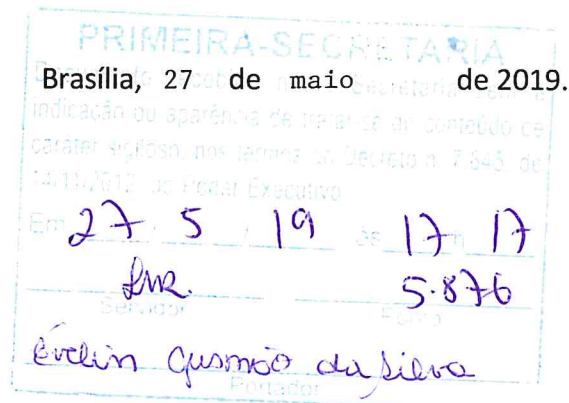 PRIMEIRA-SECRETARIA
Brasília, 27 de maio de 2019.
indicação ou aparência de tratar-se de conteúdo de
caráter sigiloso, nos termos do Decreto n. 7.845, de
14/11/2012, do Poder Executivo.
Em 27 / 5 / 19 às 17 h 17
5.876
Servidor Ponto
Evelin Gusmão da Silva
Portador